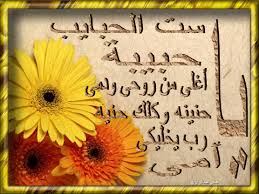 ست الحبايب
يا حبيبة
أغلى من روحى ودمى
حنينه وكلك حنيه
رب يخليكى
أمى